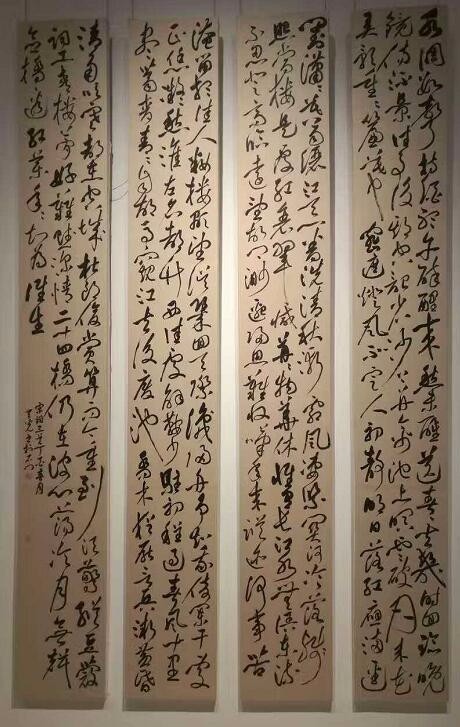 水调数声持酒听午醉醒来愁未醒送春春去几时回临晚
镜伤流景往事后期空记省沙上并禽池上暝云破月来花
弄影重重帘幕密遮灯风不定人初静明日落红应满径
对潇潇暮雨洒江天一番洗清秋渐霜风凄紧关河冷落残
照当楼是处红衰翠减苒苒物华休惟有长江水无语东流
不忍登高临远望故乡渺邈归思难收叹年来踪迹何事苦
淹留想佳人妆楼颙望误几回天际识归舟争知我倚阑干处
正恁凝愁淮左名都竹西佳处解鞍少驻初程过春风十里
尽荠麦青青自胡马窥江去后废池乔木犹厌言兵渐黄昏
清角吹寒都在空城杜郎俊赏算而今重到须惊纵豆蔻
词工青楼梦好难赋深情二十四桥仍在波心荡冷月无声
念桥边红药年年知为谁生
宋词三首